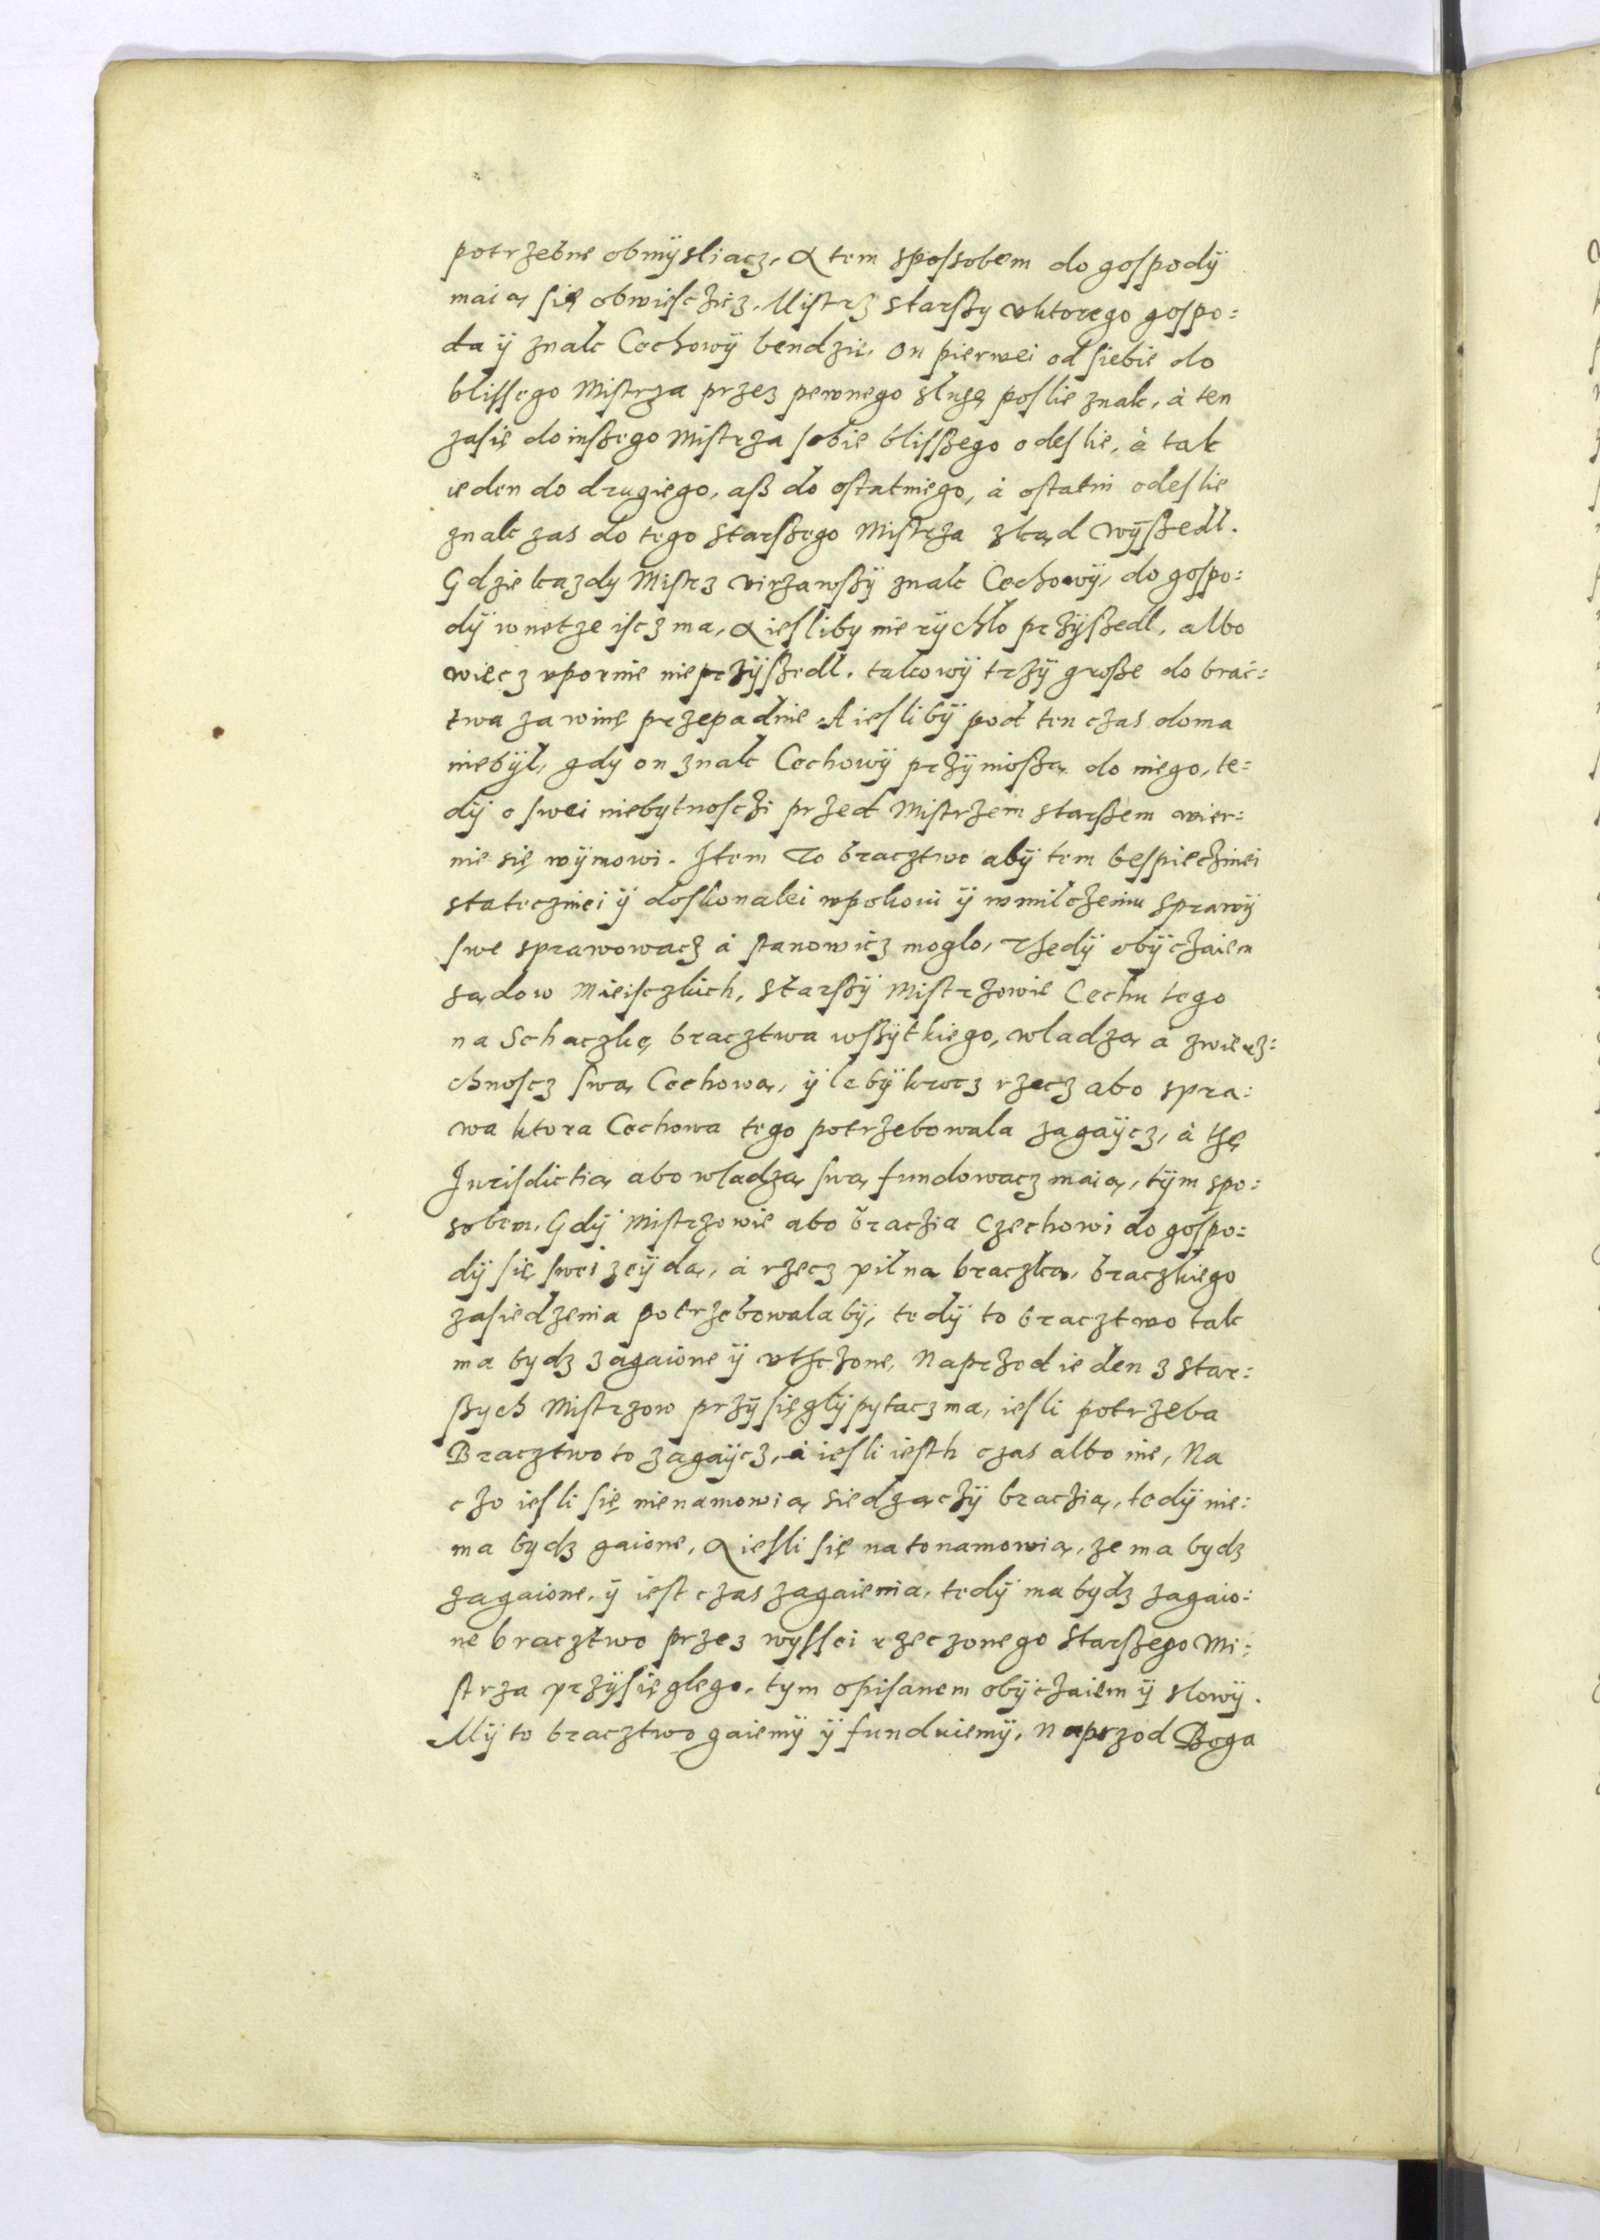 potrzebne obmÿsliacz, A tem sposſobem do goſpodÿ
maią ſię obwieſczicz. Miſtrz starßy vktorego goſpo:
da ÿ znak Cechowÿ bendzie, on pierwei od ſiebie do
bliſſego Miſtrza przez pewnego slugę poſlie znak, à ten
zaſię do inßego Miſtrza ſobie bliſſßego odeſlie, à tak
ieden do drugiego, aß do oſtatniego, à oſtatni odeſlie
znak zas do tego starßego Miſtrza zkąd wÿßedl.
Gdzie kazdy Miſtrz virzawßÿ znak Cechowÿ, do goſpo:
dÿ wnetze iſcz ma, A ieſliby nie rÿchlo przÿßedl, albo
wiecz vpornie nie przÿßedl. takowÿ trzÿ große do brac:
twa za winę przepadnie A ieſlibÿ pod ten czas doma
niebÿl, gdy on znak Cechowÿ przÿnioßą do niego, te:
dÿ o ſwei niebytnoſczi przed Miſtrzem starßem wier:
nie się wÿmowi. Item To bracztwo abÿ tem beſpiecznei
statecznei ÿ doſkonalei wpokoiu ÿ wmilczeniu sprawÿ
ſwe sprawowacz à stanowicz moglo, Thedÿ obÿczaiem
sądow Mieiſczkich, starßÿ Miſtrzowie Cechu tego
na Schaczkę bracztwa wßÿtkiego, wladzą à zwierz:
chnoſcz ſwą Cechową, ÿ le bÿ krocz rzecz abo spra:
wa ktora Cechowa tego potrzebowala zagaÿcz, à thę
Iuriſdictią abo wladzą ſwą fundowacz maią, tÿm spo:
sobem. Gdÿ Miſtrzowie abo braczia Czechowi do goſpo:
dÿ ſię ſwei zeÿdą, à rzecz pilna braczka, braczkiego
zaſiedzenia potrzebowala bÿ, tedÿ to bracztwo tak
ma bydz zagaione ÿ vthczone, Naprzod ieden z star:
ßych Miſtrzow przÿſięglÿ pytacz ma, ieſli potrzeba
Bracztwo to zagaÿcz, à ieſli ieſth czas albo nie, Na
czo ieſli ſię nie namowią siedzączÿ braczią, tedÿ nie:
ma bydz gaione, A ieſli ſię na to namowią, ze ma bydz
zagaione, ÿ ieſt czas zagaienia, tedÿ ma bydz zagaio:
ne bracztwo przez wyſſei rzeczonego starßego Mi:
ſtrza przÿſięglego, tym opiſanem obÿczaiem ÿ slowÿ.
Mÿ to bracztwo gaiemÿ ÿ funduiemÿ, Naprzod Boga